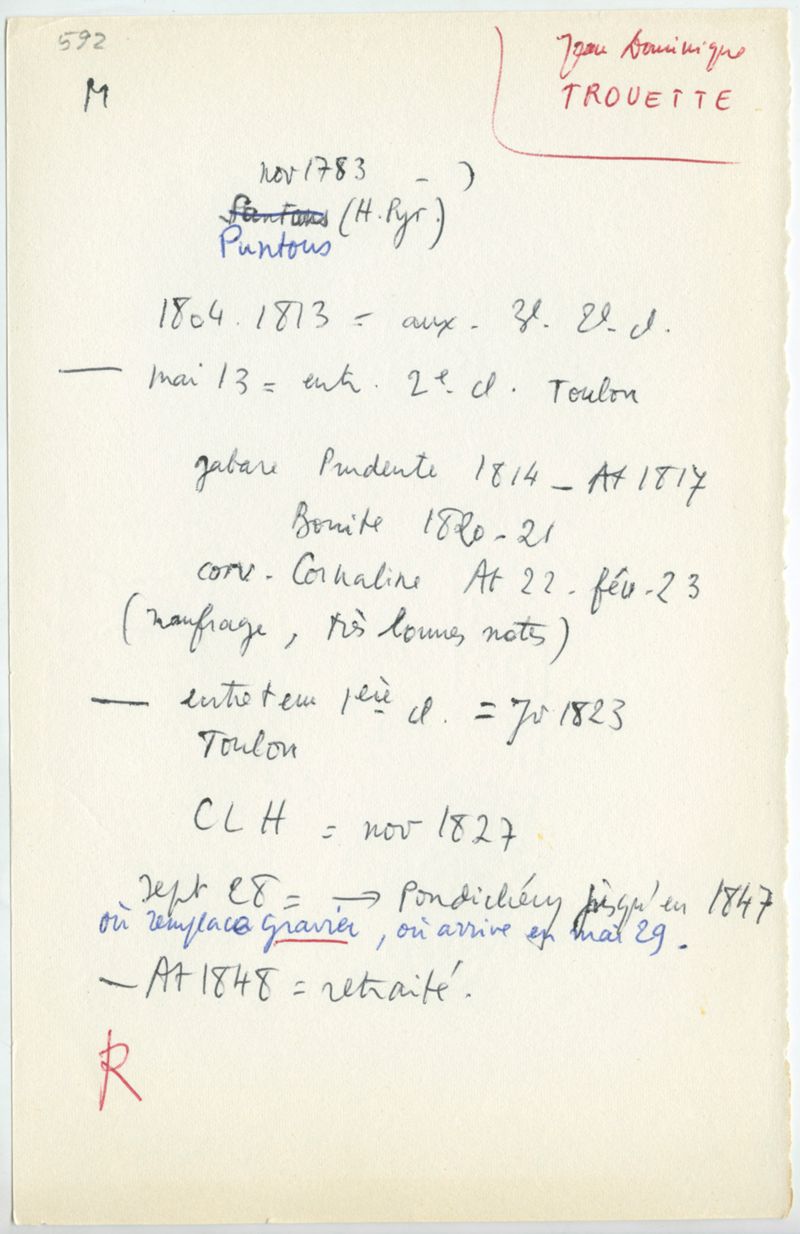 592
Jean Dominique
TROUETTE
M
nov 1783 - )
Santous (H. Pyr.)
Puntous
1804. 1813 = aux. 3e. 2e. cl.
— mai 13 = entr. 2e. cl. Toulon
gabare Prudente 1814 - At 1817
Bonite 1820-21
corv. Cornaline At 22 - fév. 23
(naufrage, très bonnes notes)
— entretenu 1ère cl. = Jr 1823
Toulon
CLH = nov 1827
sept 28 = → Pondichéry jusqu'en 1847
où remplace gravier, où arrive en mai 29.
— At 1848 = retraité.
R